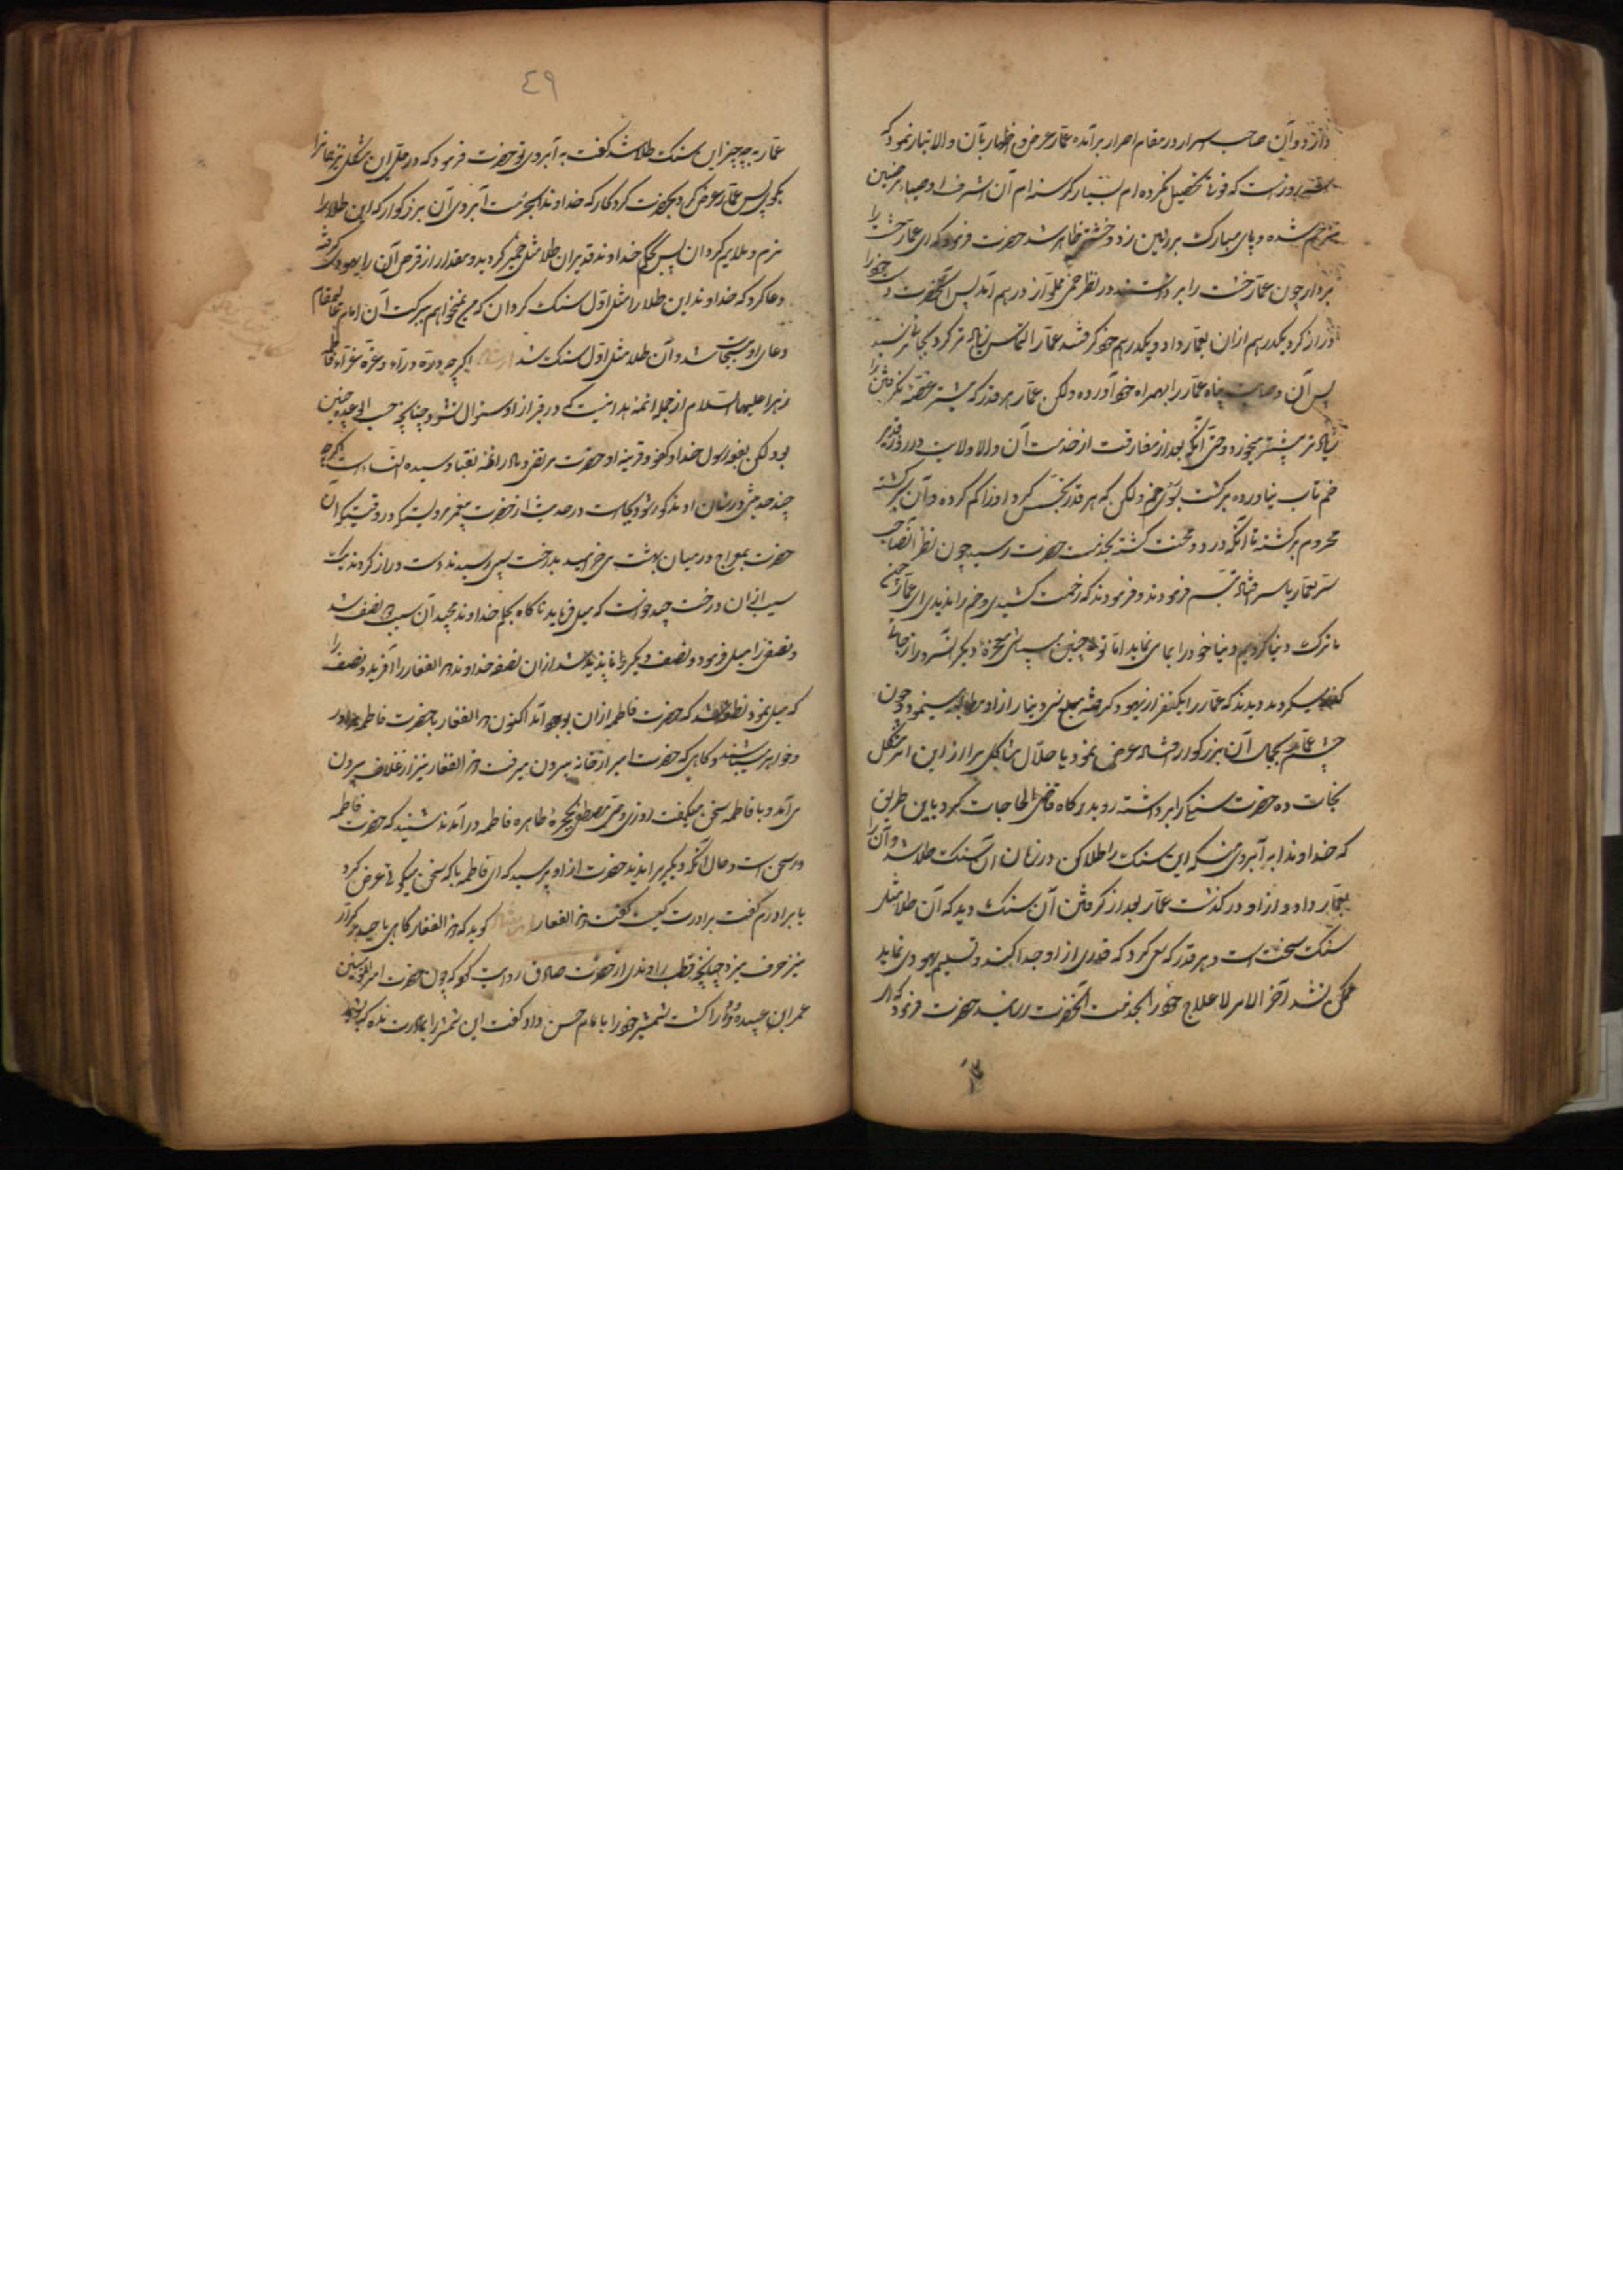 دارد و آن صاحب اسرار در مقام اصرار برآمده عمار عرض و اظهار بآن والاتبار نمود که
روزست که قوتی تحصیل نکرده ام بسیار گرسنه ام آن اشرف اوصیاء
شده و پای مبارک بر زمین زد و خشتی ظاهر شد حضرت فرمود که ای عمار خشت را
بردار چون عمار خشت را برداشتند در نظر خمی مملو از درهم آمد پس آنحضرت دست خود را
دراز کرد یکدرهم ازان بعمار داد و یکدرهم خود گرفتند عمار التماس زیاده تر کرد بجائی نرسید
پس آن پناه عمار را بهمراه خود آورده ولکن عمار هر قدر که
زیاده تر بیشتر میخورد و حتی آنکه بعد از مفارقت از خدمت آن والا ولایت در روز دیگر
خم تاب نیاورده برگشت بسوی خم ولکن که هر قدر تجسس کرد اورا گم کرده و آن برگشته
محروم برگشته تا آنکه در درد و محنت گشته بخدمت حضرت رسید چون نظر آنصاحب
سر بعمار یاسر افتاد تبسم فرمودند و فرمودند که زحمت کشیدی و خم را ندیدی ای عمار چون
ما ترک دنیا کردیم دنیا خود را بما می نماید اما تو چنین معجزهٔ دیگر آنسرور از جائی
میکردند دیدند که عمار را یکنفر از یهود گرفته مبلغ سی دینار از او مطالبه مینمود چون
چشم عمار بجمال آن بزرگوار افتاد عرض نمود یا حلال مشاکل مرا از این امر مشکل
نجات ده حضرت سنگی را برداشته رو بدرگاه قاضی الحاجات کرد باین طریق
که خداوندا به آبروی من که این سنک را طلا کن در زمان آن سنک طلا شد و آن را
بعمار داد و از او در گذشت عمار بعد از گرفتن آن سنک دید که آن طلا مثل
سنک سخت است و هر قدر که سعی کرد که قدری از او جدا کند و تسلیم یهودی نماید
ممکن نشد آخر الامر لا علاج خود را بخدمت آنحضرت رسانید حضرت فرمود که ای
٤٩
عمار به چه چیز این سنک طلا شد گفت به آبروی تو حضرت فرمود که در حل این مشکل نیز همانرا
بگو پس عمار عرض کرد بحضرت کردکار که خداوندا بحرمت آبروی آن بزرگوار که این طلا را
نرم و ملایم گردان پس بحکم خداوند قدیر آن طلا مثل خمیر گردید و مقدار از قرض آن را یهودی گرفته
دعا کرد که خداوند این طلا را مثل اول سنک گردان که من نمیخواهم ببرکت آن امام عالیمقام
دعای او مستجاب شد و آن طلا مثل اول سنک شد اگر چه درّه درّاء و غرّه غرّاء فاطمه
زهرا علیها السلام از جمله ائمه هدا نیست که در قبر از او سؤال نشود چنانچه حسب الوعده چنین
بود لکن بضعه رسول خدا و کفو و قرینه او حضرت مرتضی و مادر ائمه نقبا و سیده النساء است اگرچه
چند حدیثی در شان او مذکور شود بجاست در حدیث از حضرت پیغمبر مرویست که در وقتیکه آن
حضرت بمعراج در میان بهشت می خرامید بدرخت سیبی رسیدند دست دراز کردند یک
سیب ازان درخت چید خواست که میل فرماید ناگاه بحکم خداوند مجید آن سیب دو نصف شد
و نصفی را میل فرمود و نصف دیگر ناپدید شد ازان نصفه خداوند ذو الفقار را آفرید و نصف را
که میل نمود نطفه شد که حضرت فاطمه ازان بوجود آمد اکنون ذو الفقار با حضرت فاطمه برادر
و خواهر میباشند و گاهی که حضرت امیر از خانه بیرون میرفت ذو الفقار نیز از غلاف بیرون
می آمد و با فاطمه سخن میگفت روزی مصطفی بحجره طاهره فاطمه در آمد شنید که حضرت فاطمه
در سخن است و حال آنکه دیگری را ندید حضرت از او پرسید که ای فاطمه با که سخن میگوئی عرض کرد
با برادرم گفت برادرت کیست گفت ذو الفقار گوید که ذو الفقار گاهی با حیدر کرار
نیز حرف میزد چنانچه قطب راوندی از حضرت صادق روایت کند که چون حضرت امیر المؤمنین
عمران را کشت شمشیر خود را به امام حسن داد گفت این شمشیر را بمادرت بده که بشوید